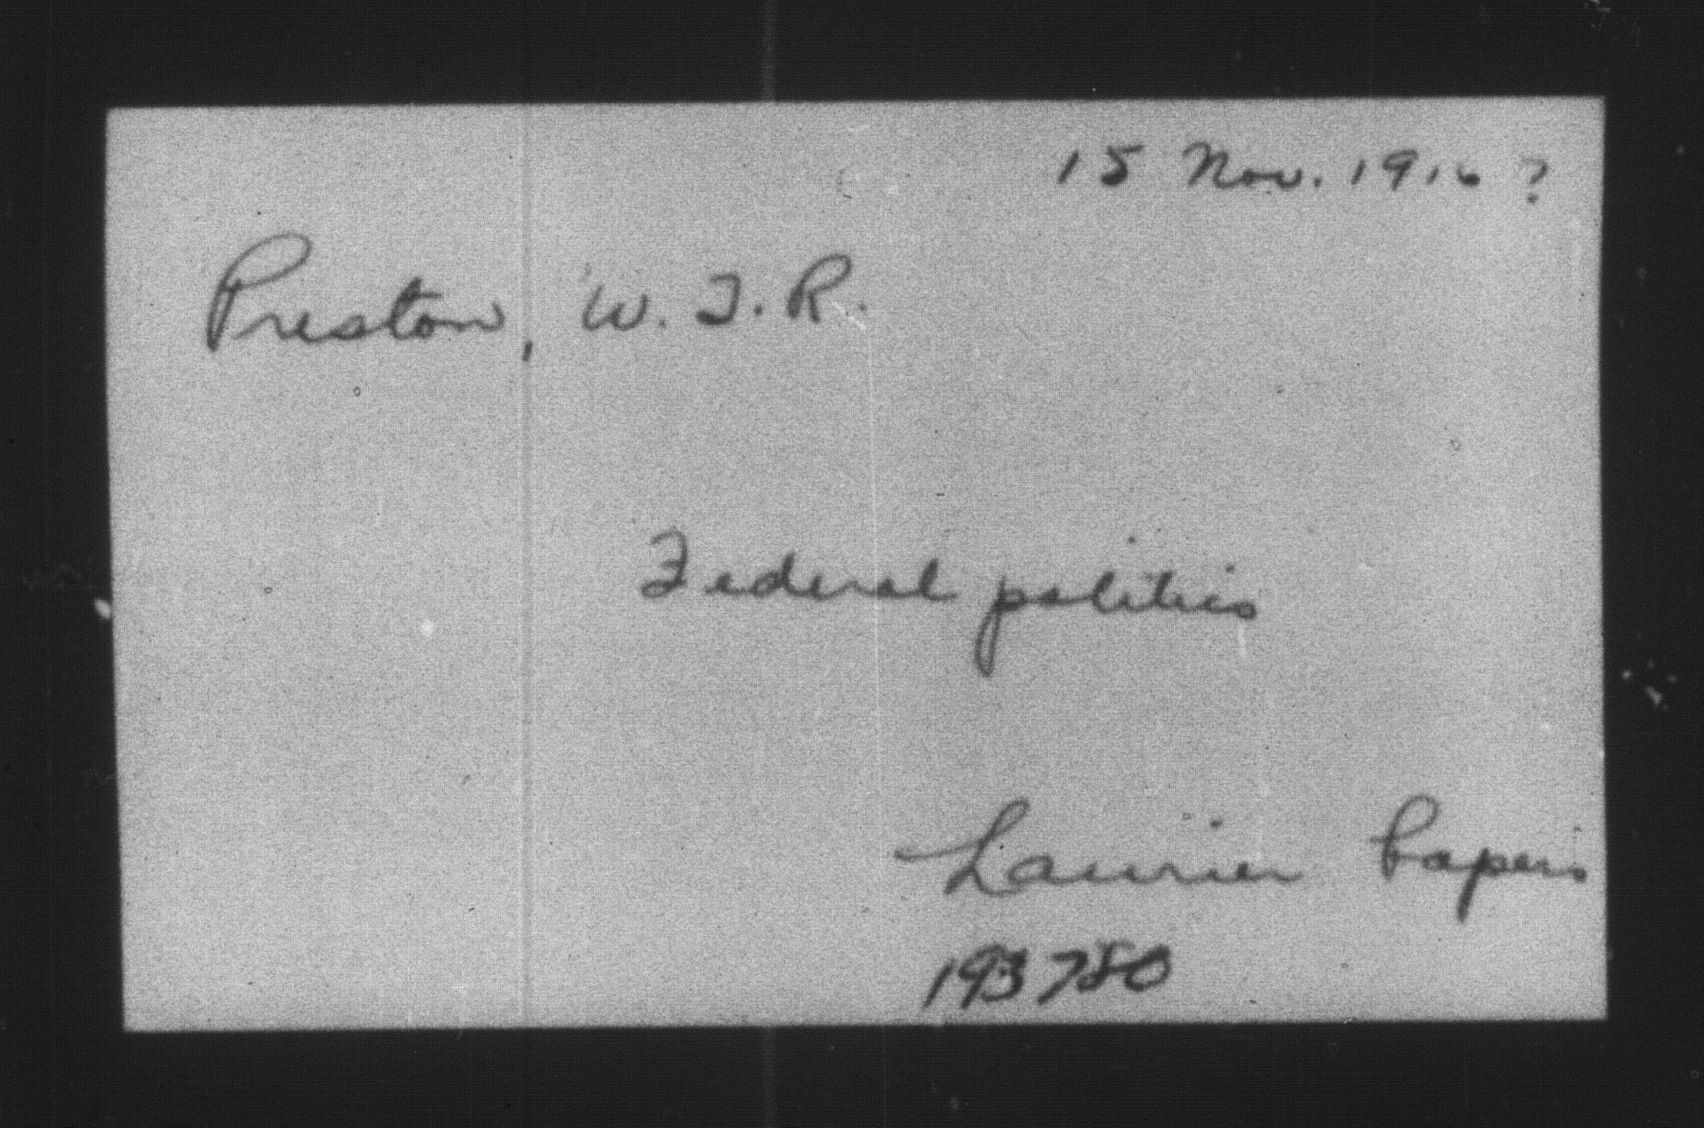 15 Nov. 1916 ?
Preston, W. T. R.
Federal politics
Laurier Papers
193780